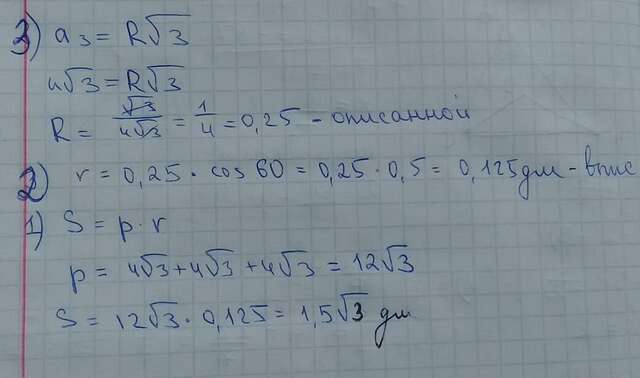 3) a₃ = R√3
4√3 = R√3
R = √3/4√3 = 1/4 = 0,25 - описанной
2) r = 0,25 · cos 60 = 0,25 · 0,5 = 0,125 дм - впис
1) S = p · r
p = 4√3 + 4√3 + 4√3 = 12√3
S = 12√3 · 0,125 = 1,5√3 дм